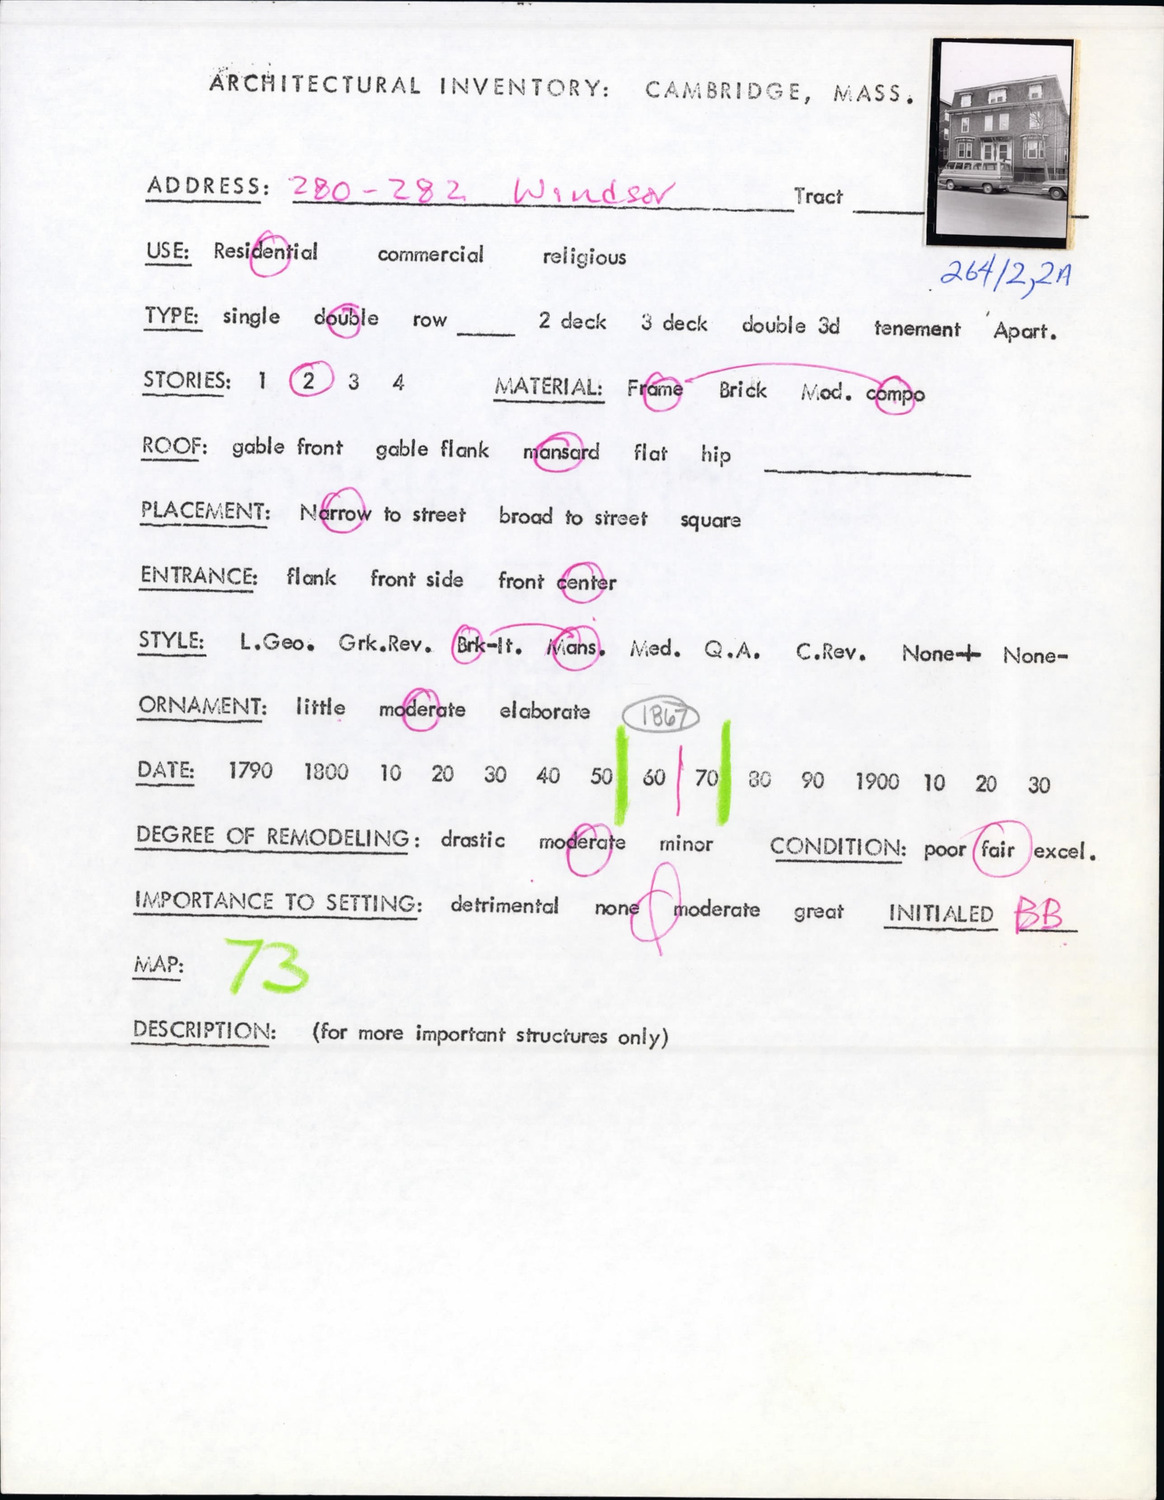 ARCHITECTURAL INVENTORY: CAMBRIDGE, MASS.
ADDRESS: 280-282 Windsor Tract
264/2,2A
USE: Residential commercial religious
TYPE: single double row ____ 2 deck 3 deck double 3d tenement Apart.
STORIES: 1 2 3 4 MATERIAL: Frame Brick Mod. compo
ROOF: gable front gable flank mansard flat hip
PLACEMENT: Narrow to street broad to street square
ENTRANCE: flank front side front center
STYLE: L.Geo. Grk.Rev. Brk-It. Mans. Med. Q.A. C.Rev. None+ None-
ORNAMENT: little moderate elaborate 1867
DATE: 1790 1800 10 20 30 40 50 60 70 80 90 1900 10 20 30
DEGREE OF REMODELING: drastic moderate minor CONDITION: poor fair excel.
IMPORTANCE TO SETTING: detrimental none moderate great INITIALED BB
MAP: 73
DESCRIPTION: (for more important structures only)